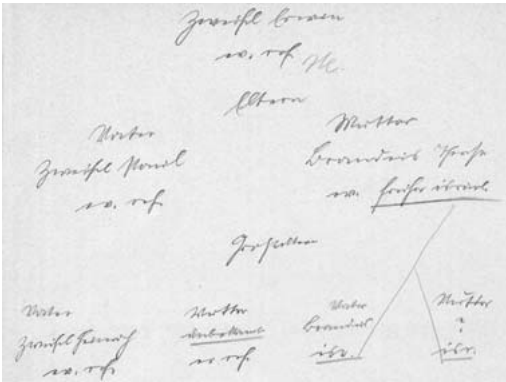 Zweifel Erwin
ev. ref. M.
Eltern
Vater
Zweifel
ev. ref.
Mutter
Brandeis
ev. früher israel.
Großeltern
Vater
Zweifel Heinrich
ev. ref.
Mutter
unbekannt
ev. ref.
Vater
Brandeis
isr.
Mutter
?
isr.